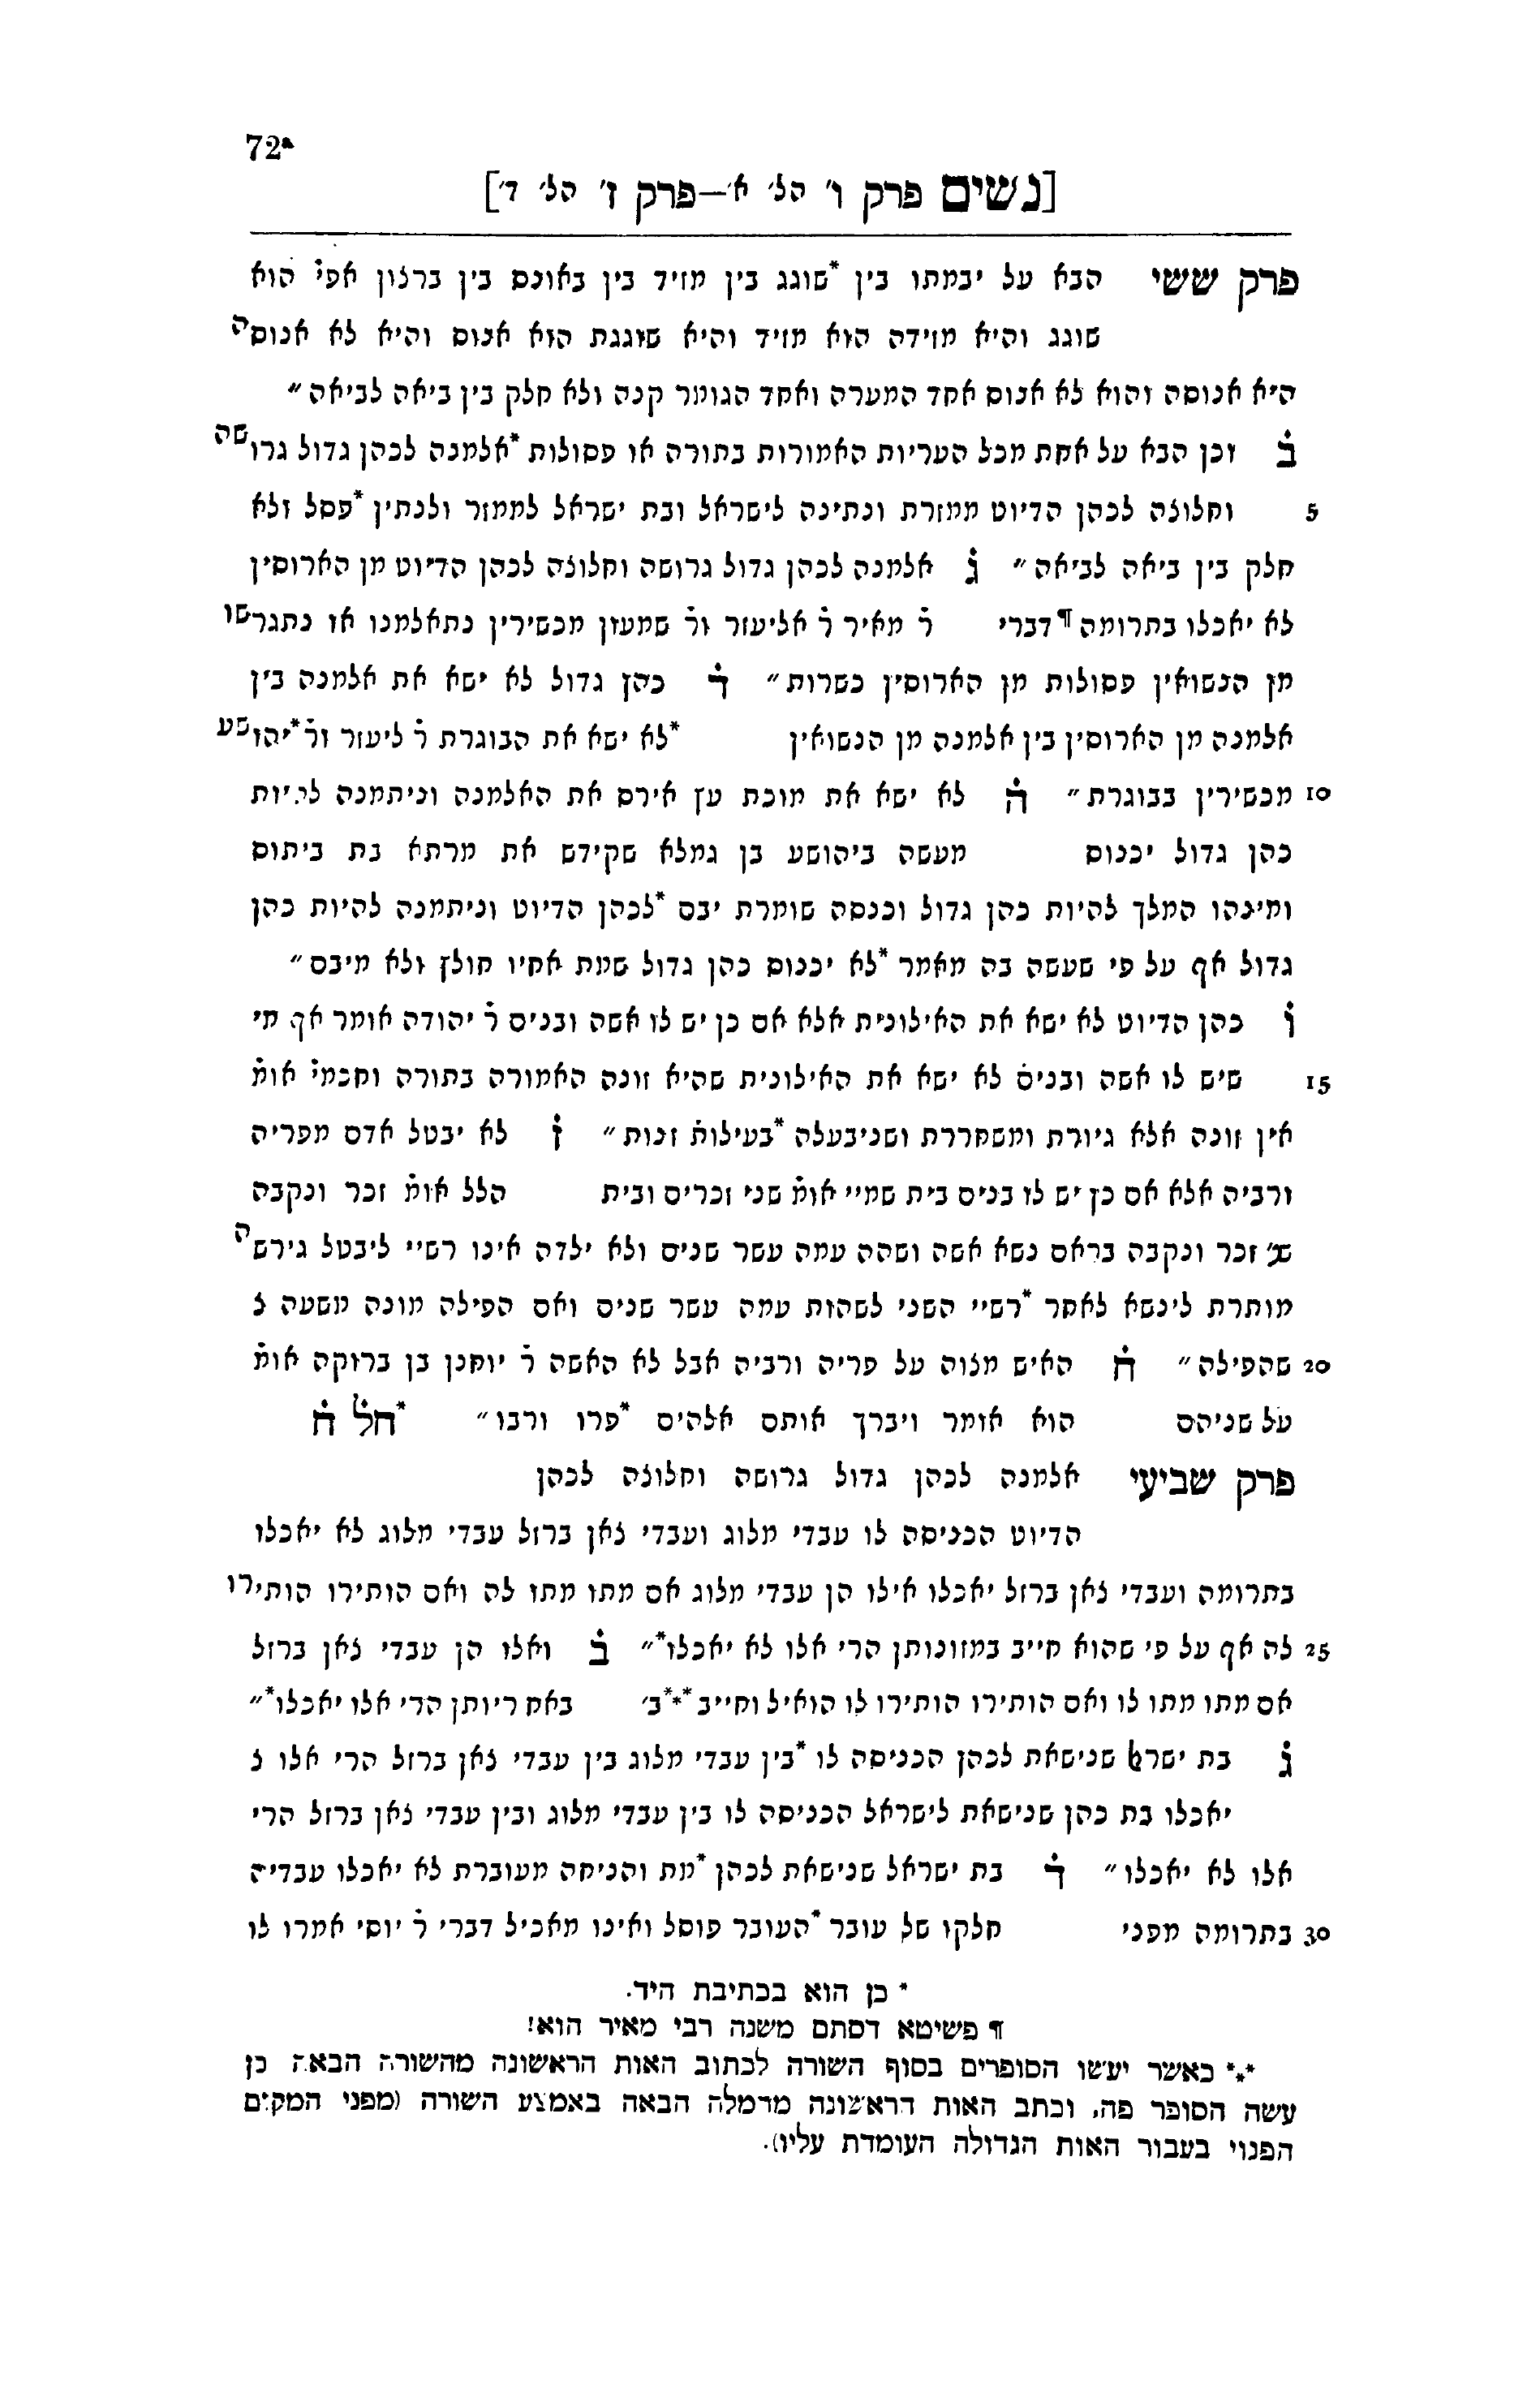 72a
[נשים פרק ו' הל' א'—פרק ז' הל' ד']
פרק ששי הבא על יבמתו בין *שוגג בין מזיד בין באונס בין ברצון אפי̇ הוא
שוגג והיא מזידה הוא מזיד והיא שוגגת הוא אנוס והיא לא אנוסה
היא אנוסה והוא לא אנוס אחד המערה ואחד הגומר קנה ולא חלק בין ביאה לביאה״
ב̇ וכן הבא על אחת מכל העריות האמורות בתורה או פסולות *אלמנה לכהן גדול גרושה
5 וחלוצה לכהן הדיוט ממזרת ונתינה לישראל ובת ישראל לממזר ולנתין *פסל ולא
חלק בין ביאה לביאה״ ג̇ אלמנה לכהן גדול גרושה וחלוצה לכהן הדיוט מן הארוסין
לא יאכלו בתרומה ¶דברי ר̇ מאיר ר̇ אליעזר ור̇ שמעון מכשירין נתאלמנו או נתגרשו
מן הנשואין פסולות מן הארוסין כשרות״ ד̇ כהן גדול לא ישא את אלמנה בין
אלמנה מן הארוסין בין אלמנה מן הנשואין *לא ישא את הבוגרת ר̇ ליעזר ור̇ *יהושע
10 מכשירין בבוגרת״ ה̇ לא ישא את מוכת עץ אירס את האלמנה וניתמנה להיות
כהן גדול יכנוס מעשה ביהושע בן גמלא שקידש את מרתא בת ביתוס
ומינהו המלך להיות כהן גדול וכנסה שומרת יבם *לכהן הדיוט וניתמנה להיות כהן
גדול אף על פי שעשה בה מאמר *לא יכנוס כהן גדול שמת אחיו חולץ ולא מיבם״
ו̇ כהן הדיוט לא ישא את האילונית אלא אם כן יש לו אשה ובנים ר̇ יהודה אומר אף מי
15 שיש לו אשה ובנים לא ישא את האילונית שהיא זונה האמורה בתורה וחכמי̇ אומ̇
אין זונה אלא גיורת ומשחררת ושניבעלה *בעילות̇ זנות״ ז̇ לא יבטל אדם מפריה
ורביה אלא אם כן יש לו בנים בית שמיי אומ̇ שני זכרים ובית הלל אומ̇ זכר ונקבה
שנ׳ זכר ונקבה בראם נשא אשה ושהה עמה עשר שנים ולא ילדה אינו רשיי ליבטל גירשה
מותרת לינשא לאחר *רשיי השני לשהות עמה עשר שנים ואם הפילה מונה משעה צ
20 שהפילה״ ח̇ האיש מצוה על פריה ורביה אבל לא האשה ר̇ יוחנן בן ברוקה אומ̇
על שניהם הוא אומר ויברך אותם אלהים *פרו ורבו״ *הל̇ ח̇
פרק שביעי אלמנה לכהן גדול גרושה וחלוצה לכהן
הדיוט הכניסה לו עבדי מלוג ועבדי צאן ברזל עבדי מלוג לא יאכלו
בתרומה ועבדי צאן ברזל יאכלו אילו הן עבדי מלוג אם מתו מתו לה ואם הותירו הותירו
25 לה אף על פי שהוא חייב במזונותן הרי אלו לא יאכלו*״ ב̇ ואלו הן עבדי צאן ברזל
אם מתו מתו לו ואם הותירו הותירו לו הואיל וחייב *⁎*ב׳ באחריותן הרי אלו יאכלו*״
ג̇ בת ישראל שנישאת לכהן הכניסה לו *בין עבדי מלוג בין עבדי צאן ברזל הרי אלו צ
יאכלו בת כהן שנישאת לישראל הכניסה לו בין עבדי מלוג ובין עבדי צאן ברזל הרי
אלו לא יאכלו״ ד̇ בת ישראל שנישאת לכהן *מת והניחה מעוברת לא יאכלו עבדיה
30 בתרומה מפני חלקו של עובר *העובר פוסל ואינו מאכיל דברי ר̇ יוסי אמרו לו
* כן הוא בכתיבת היד.
¶ פשיטא דסתם משנה רבי מאיר הוא!
*⁎* כאשר יעשו הסופרים בסוף השורה לכתוב האות הראשונה מהשורה הבאה כן
עשה הסופר פה, וכתב האות הראשונה מהמלה הבאה באמצע השורה (מפני המקום
הפנוי בעבור האות הגדולה העומדת עליו).